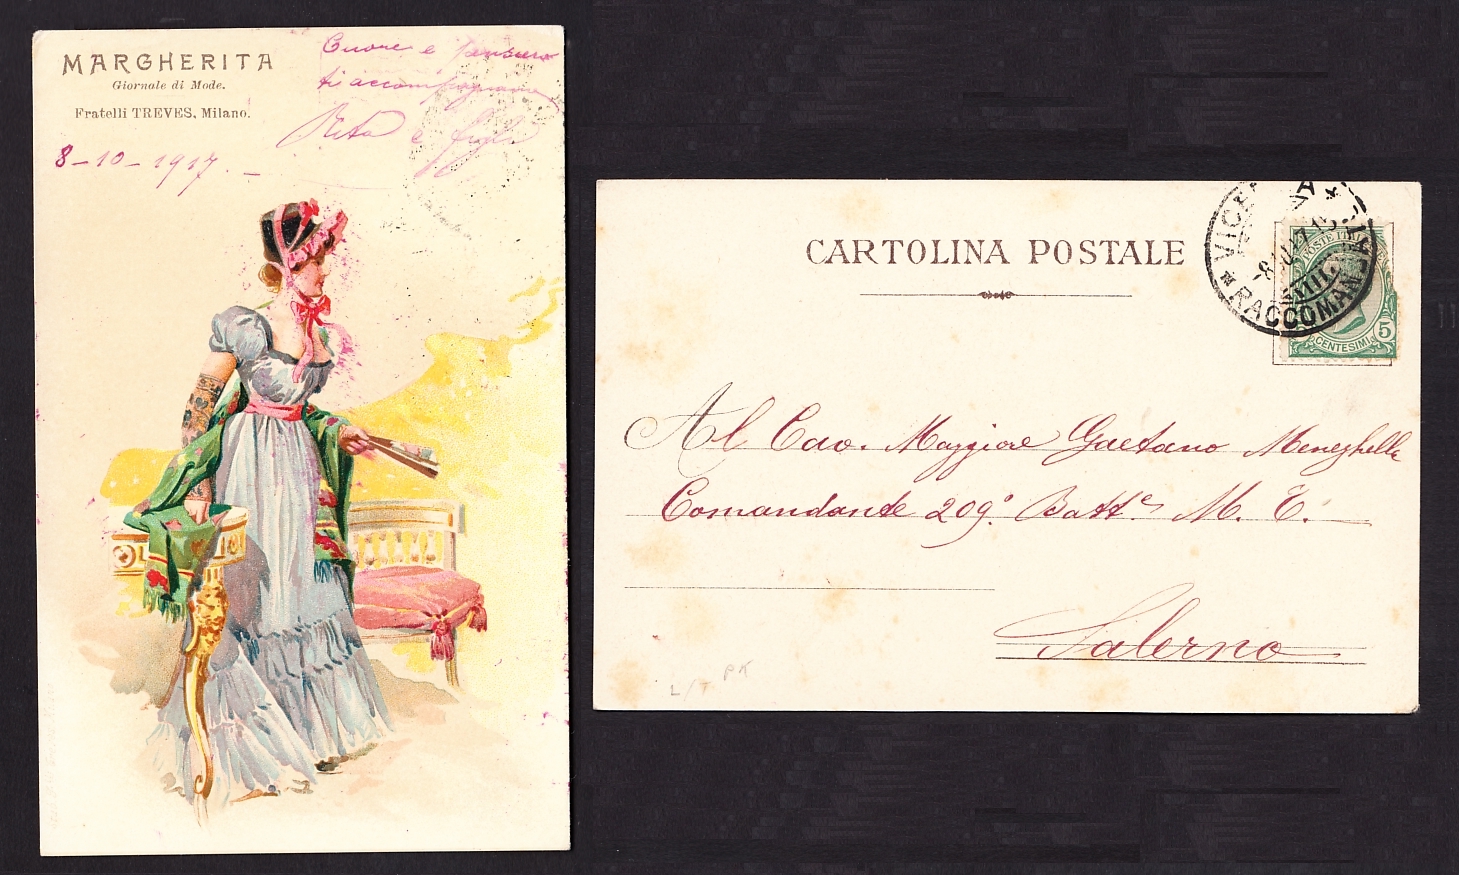 MARGHERITA
Giornale di Mode.
Fratelli TREVES, Milano.
Cuore e pensiero
ti accompagnano
Rita e figli
8-10-1917.-
CARTOLINA POSTALE
VICENZA
RACCOMAN
POSTE ITA
CENTESIMI 5
Al Cav. Maggiore Gaetano Meneghelli
Comandante 209° Batt. M. T.
Salerno
L/T PK